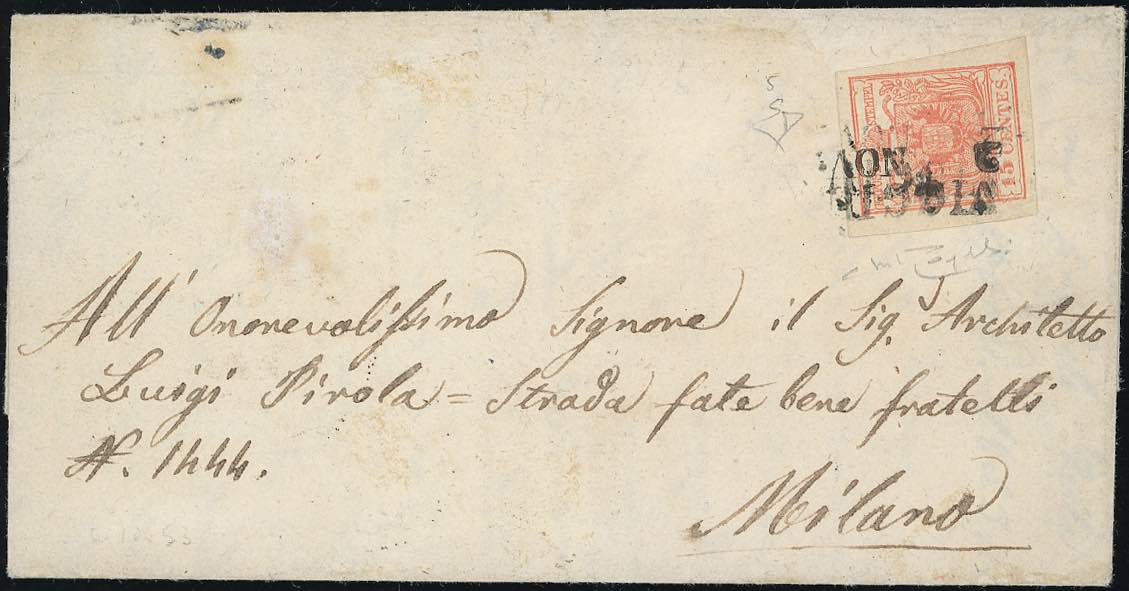 STEMPEL
15 CENTES.
All' Onorevolissimo Signore il Sig. Architetto
Luigi Pirola = Strada fate bene fratelli
N. 1444.
Milano